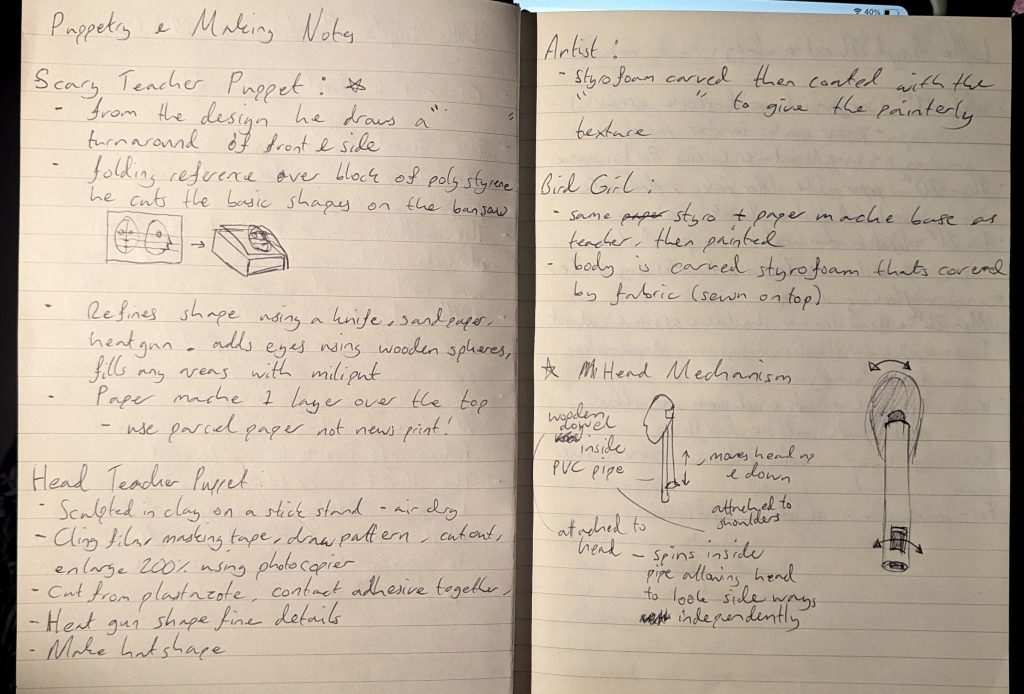 Puppetry & Making Notes
Scary Teacher Puppet : ☆
- from the design he draws a "
turnaround of front & side "
- folding reference over block of polystyrene
he cuts the basic shapes on the bansaw
- Refines shape using a knife, sandpaper,
heatgun. adds eyes using wooden spheres,
fills any areas with miliput
- Paper mache 1 layer over the top
- use parcel paper not news print!
Head Teacher Puppet.
- Sculpted in clay on a stick stand - air dry
- Cling film, masking tape, draw pattern, cut out,
enlarge 200% using photocopier
- Cut from plastazote, contact adhesive together,
- Heat gun shape fine details
- Make hat shape
40%
Artist :
- Styrofoam carved then coated with the
" " to give the painterly
texture
Bird Girl :
- same paper styro + paper mache base as
teacher, then painted
- body is carved styrofoam thats covered
by fabric (sewn on top)
☆ Head Mechanism
wooden
dowel
inside
PVC pipe
moves head up
& down
attached to
shoulders
attached to
head - spins inside
pipe allowing head
to look side ways
independently